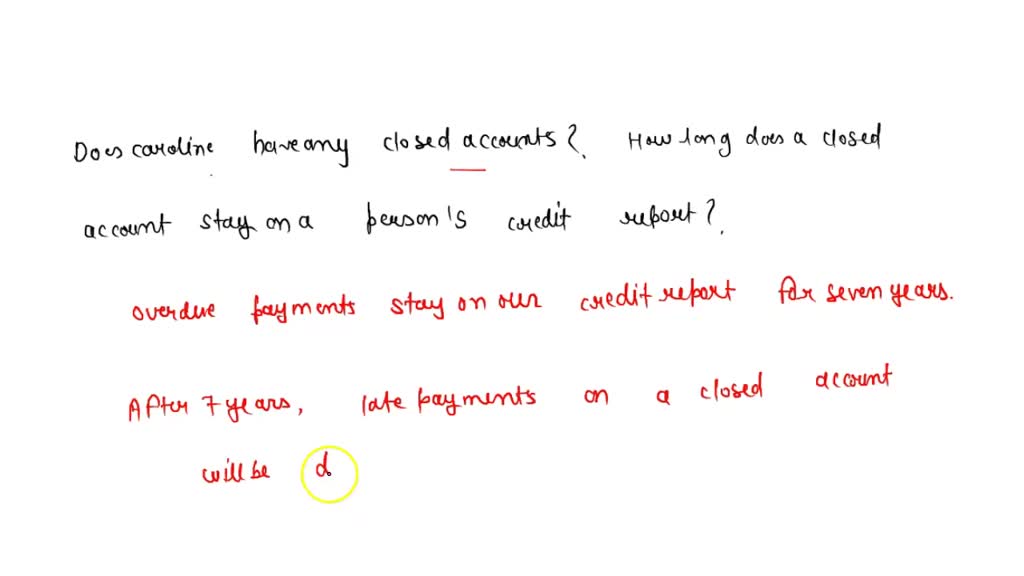 Does caroline have any closed accounts? How long does a closed
account stay on a person's credit report?
overdue payments stay on our credit report for seven years.
After 7 years, late payments on a closed account
will be d